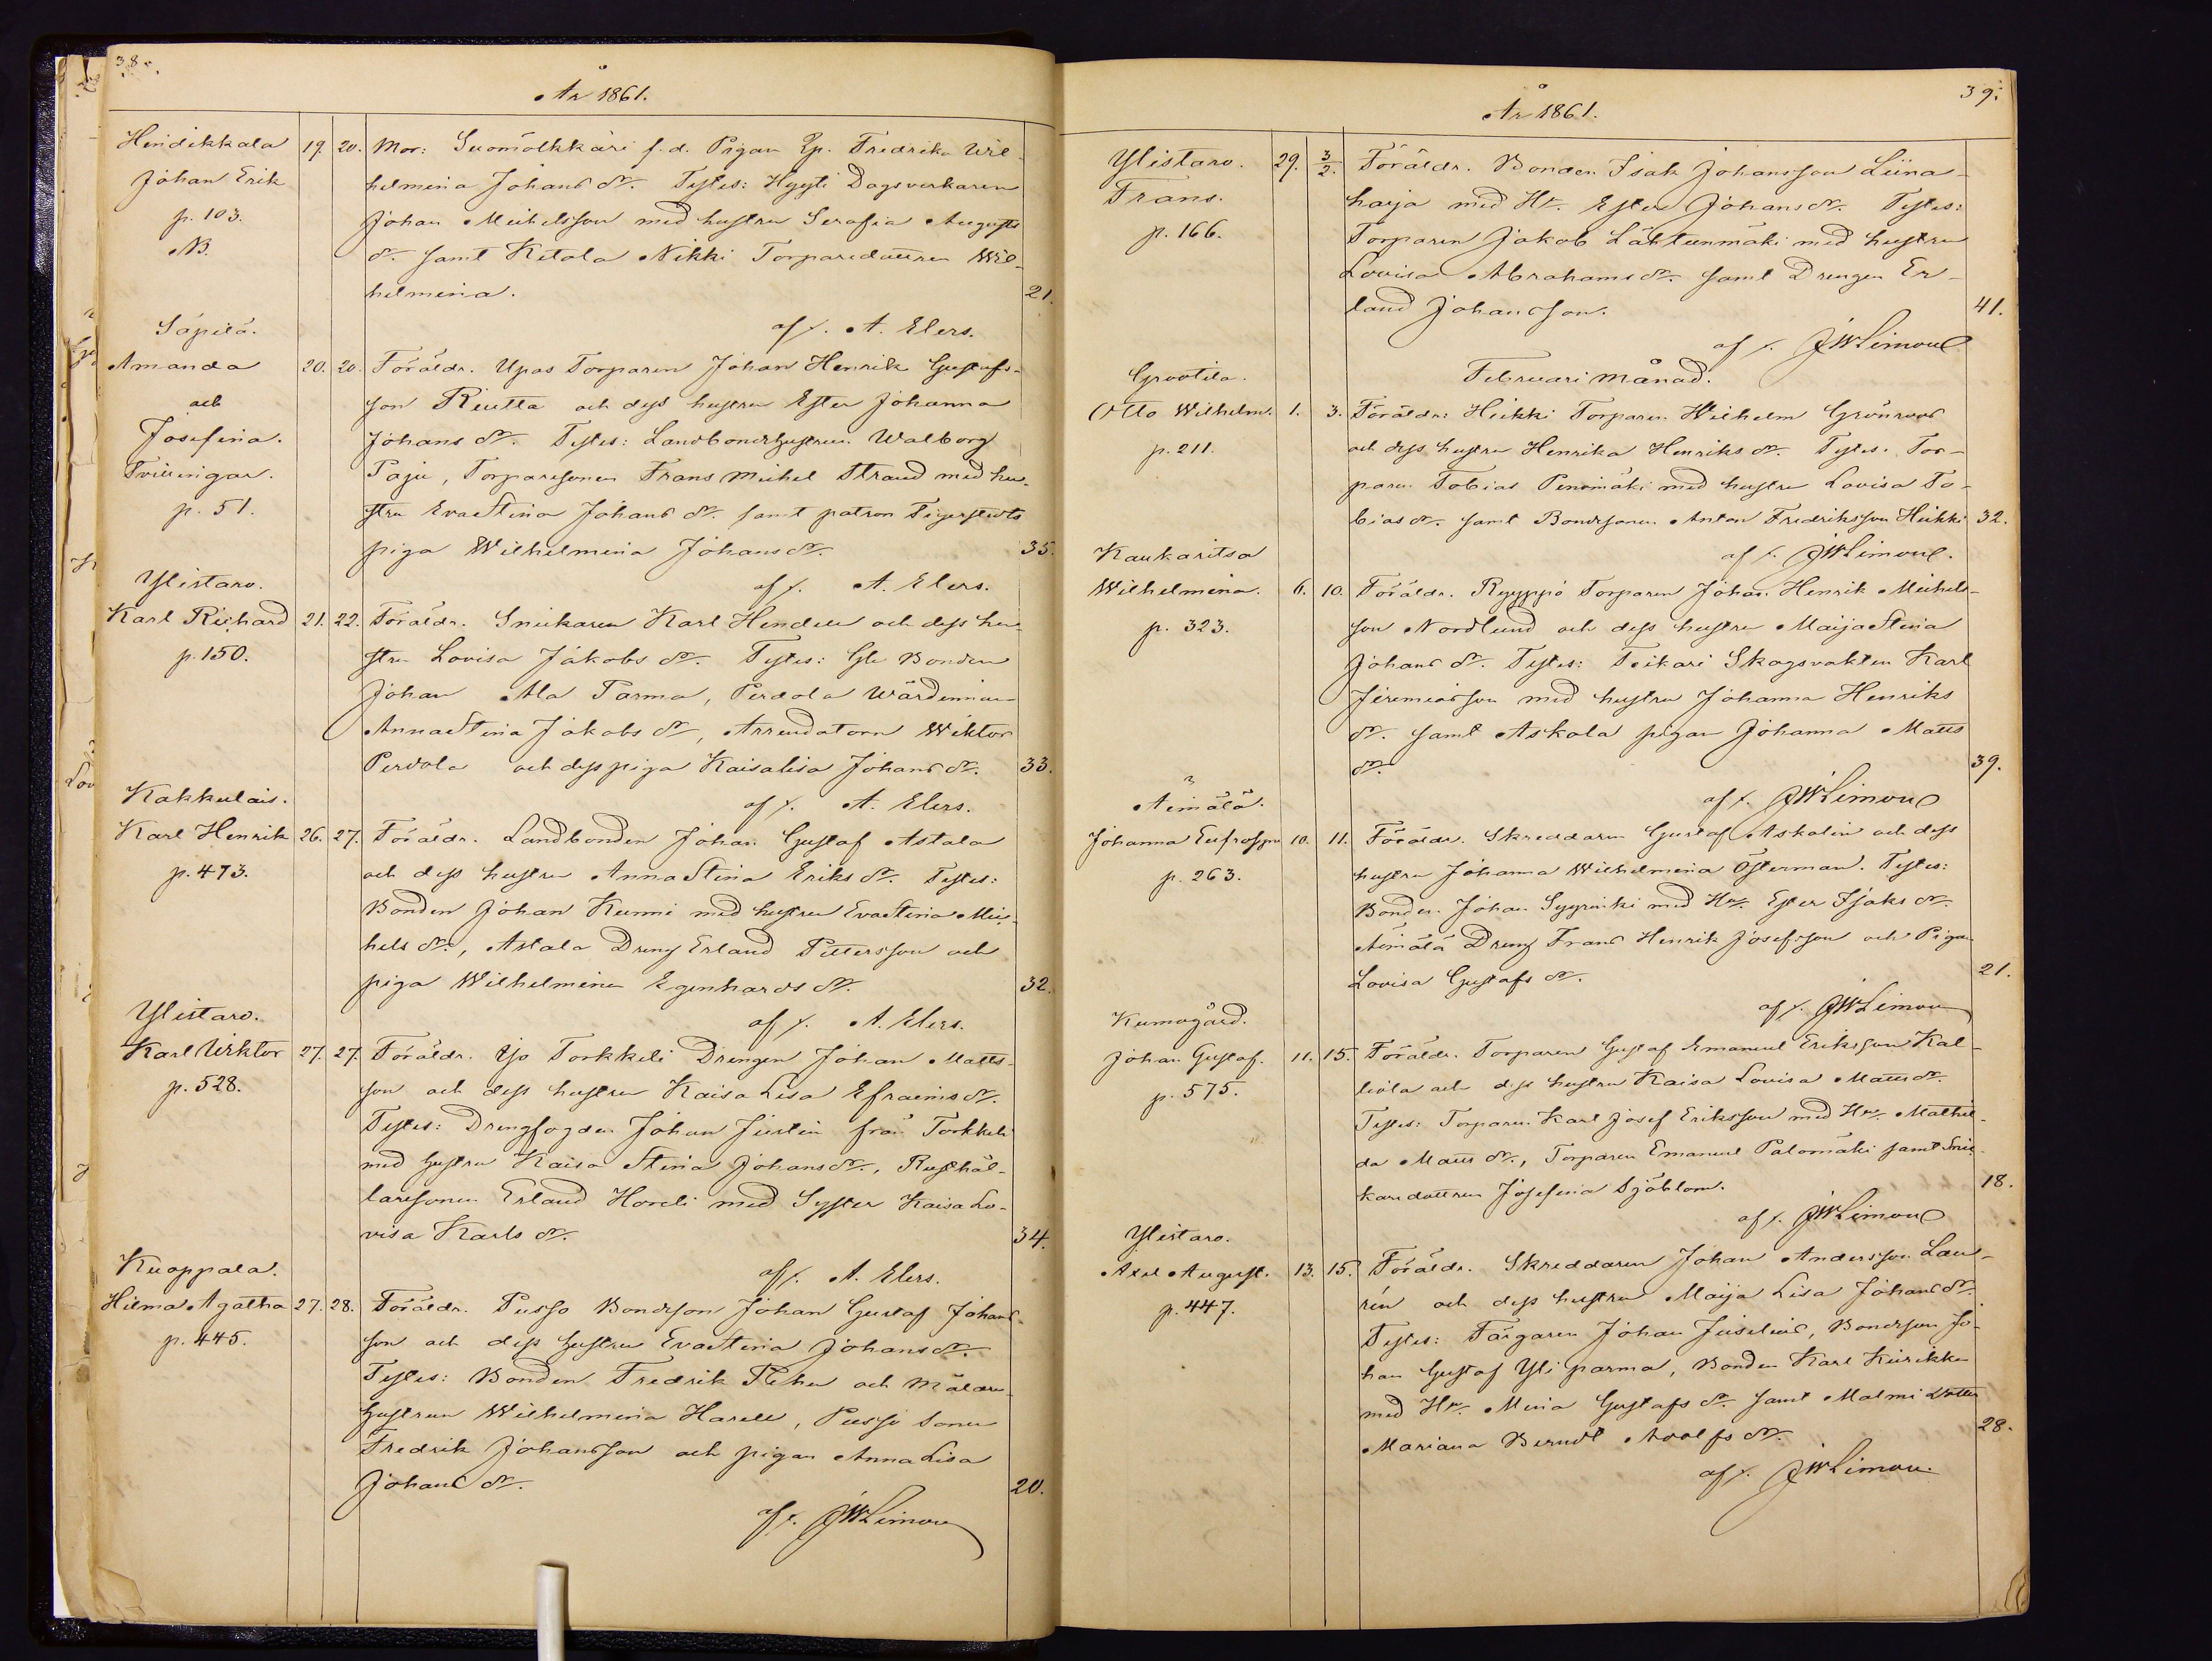 38.
År 1861.
Heindikkala 19. 20. Mor: Suomälkkäri f.d. Pigan Ep. Fredrika Wil-
Johan Erik helmina Johans dr. Testes: Hyyti Dagsverkaren
p. 103. Johan Michelsson med hustru Serafia Augusts
NB. dr. samt Ketola Nikki Torparedottren Wil-
helmina. 21.
Säpilä. af f. A. Elers.
Amanda 20. 20. Föräldr. Upas Torparen Johan Henrik Gustafs-
och son Riutta och dess hustru Ester Johanna
Josefina. Johans dr. Testes: Landbondehustrun Walborg
Tvillingar. Paju, Torparesonen Frans Michel Strand med hu-
p. 51. stru Eva Stina Johans dr. samt patron Tigerstedts
piga Wilhelmina Johans dr. 35.
Ylistaro. af f. A. Elers.
Karl Richard 21. 22. Föräldr. Snickaren Karl Hendell och dess hu-
p. 150. stru Lovisa Jakobs dr. Testes: Gle Bonden
Johan Ala Parma, Perdola Wärdinnan
Anna Stina Jakobs dr, Arrendatorn Wiktor
Perdola och dess piga Kaisalisa Johans dr. 33.
Kakkulais. af f. A. Elers.
Karl Henrik 26. 27. Föräldr. Landbonden Johan Gustaf Astala
p. 473. och dess hustru Anna Stina Eriks dr. Testes:
Bonden Johan Kunni med hustru Eva Stina Mic-
hels dr., Astala Dreng Erland Pettersson och
piga Wilhelmina Egenhards dr. 32.
Ylistaro. af f. A. Elers.
Karl Wiktor 27. 27. Föräldr. Yjo Torkkeli Drengen Johan Matts-
p. 528. son och dess hustru Kaisa Lisa Efraims dr.
Testes: Drengfogden Johan Justin från Torkkeli
med hustru Kaisa Stina Johans dr., Rusthål-
laresonen Erland Horeli med Syster Kaisa Lo-
visa Karls dr. 34.
Kuoppala. af f. A. Elers.
Hilma Agatha 27. 28. Föräldr. Pusso Bondeson Johan Gustaf Johans-
p. 445. son och dess hustru Eva Stina Johans dr.
Testes: Bonden Fredrik Pehu och Målare-
hustrun Wilhelmina Harell, Pusso Sonen
Fredrik Johansson och pigan Anna Lisa
Johans dr. 20.
af f. JWLimon
39.
År 1861.
Ylistaro. 29. 3/2. Föräldr. Bonden Isak Johansson Liina-
Frans. harja med Hu. Ester Johans dr. Testes:
p. 166. Torparen Jakob Lähteenmäki med hustru
Lovisa Abrahams dr. samt Drengen Er-
land Johansson. 41.
af f. JWLimon
Februari Månad.
Grootila.
Otto Wilhelm. 1. 3. Föräldr: Heikki Torparen Wilhelm Grönroos
p. 211. och dess hustru Henrika Henriks dr. Testes. Tor-
paren Tobias Penimäki med hustru Lovisa To-
bias dr. samt Bondesonen Anton Fredriksson Heikki 32.
Kaukaritsa af f. JWLimon.
Wilhelmina. 6. 10. Föräldr. Ryyppö Torparen Johan Henrik Michels-
p. 323. son Nordlund och dess hustru Maija Stina
Johans dr. Testes: Teikari Skogsvakten Karl
Jeremiasson med hustru Johanna Henriks
dr. samt Askola pigan Johanna Matts
dr. 39.
Äimälä. af f. JWLimon
Johanna Eufrosyne 10. 11. Föräldr. Skreddaren Gustaf Askolin och dess
p. 263. hustru Johanna Wilhelmina Österman. Testes:
Bonden Johan Syyrinki med Hu. Ester Isaks dr.
Äimälä Dreng Frans Henrik Josefsson och Pigan
Lovisa Gustafs dr. 21.
Kumogård. af f. JWLimon
Johan Gustaf. 11. 15. Föräldr. Torparen Gustaf Emanuel Eriksson Kal-
p. 575. liola och dess hustru Kaisa Lovisa Matts dr.
Testes: Torparen Karl Josef Eriksson med Hu. Mathil-
da Matts dr., Torparen Emanuel Palomäki samt Snic-
karedottren Josefina Sjöblom. 18.
Ylistaro. af f. JWLimon
Axel August. 13. 15. Föräldr. Skreddaren Johan Andersson Lau-
p. 447. rén och dess hustru Maija Lisa Johans dr.
Testes: Färgaren Johan Juselius, Bondeson Jo-
han Gustaf Yli parma, Bonden Karl Kiirikka
med Hu. Mina Gustafs dr. samt Malmi dotter
Mariana Berndt Adolfs dr. 28.
af f. JWLimon.